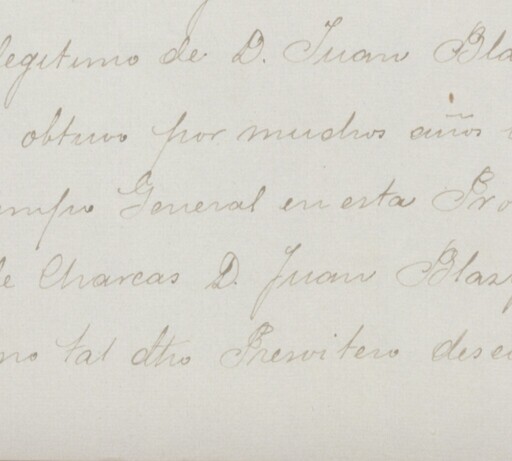 legitimo de D. Juan Bla
obtuvo por muchos años
empo General en esta Pro
de Charcas D. Juan Blas
no tal dho Presvitero dese